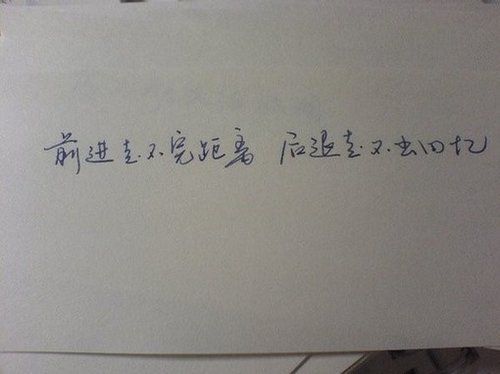 前进走不完距离 后退走不出回忆